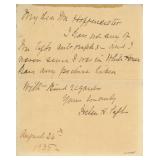 My dear Mr. Hoppmeister
I have not any of
Mr. Taft's autographs and I
never since I was in White House
have any picture taken
With kind regards
Yours sincerely
Helen H. Taft
August 26th
1925